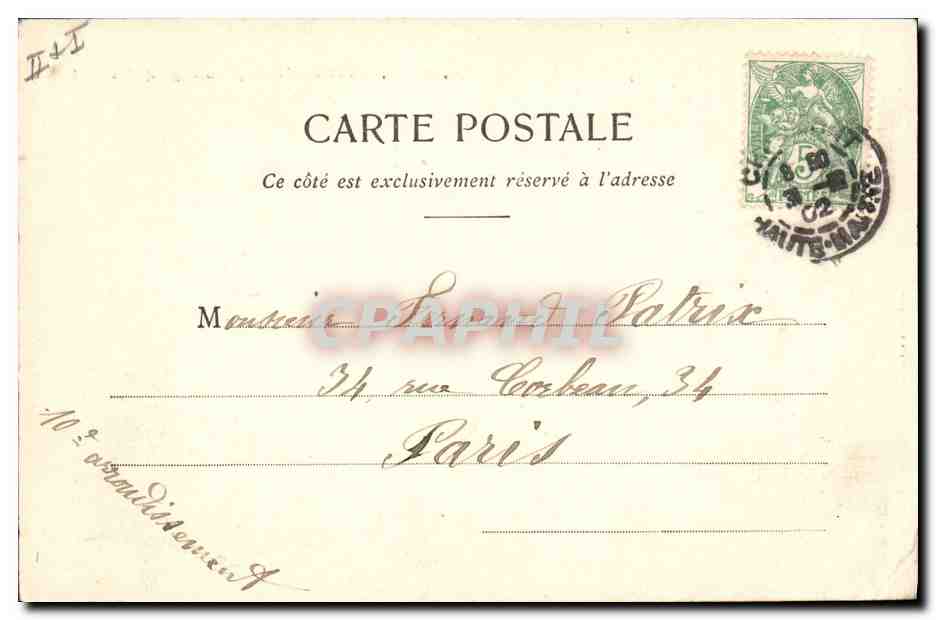 II & I
CARTE POSTALE
Ce côté est exclusivement réservé à l'adresse
5
8 50
3
02
HAUTE-MARNE
Monsieur Fernand Patrix
CPAPHIL
34, rue Corbeau, 34
Paris
10e arrondissement